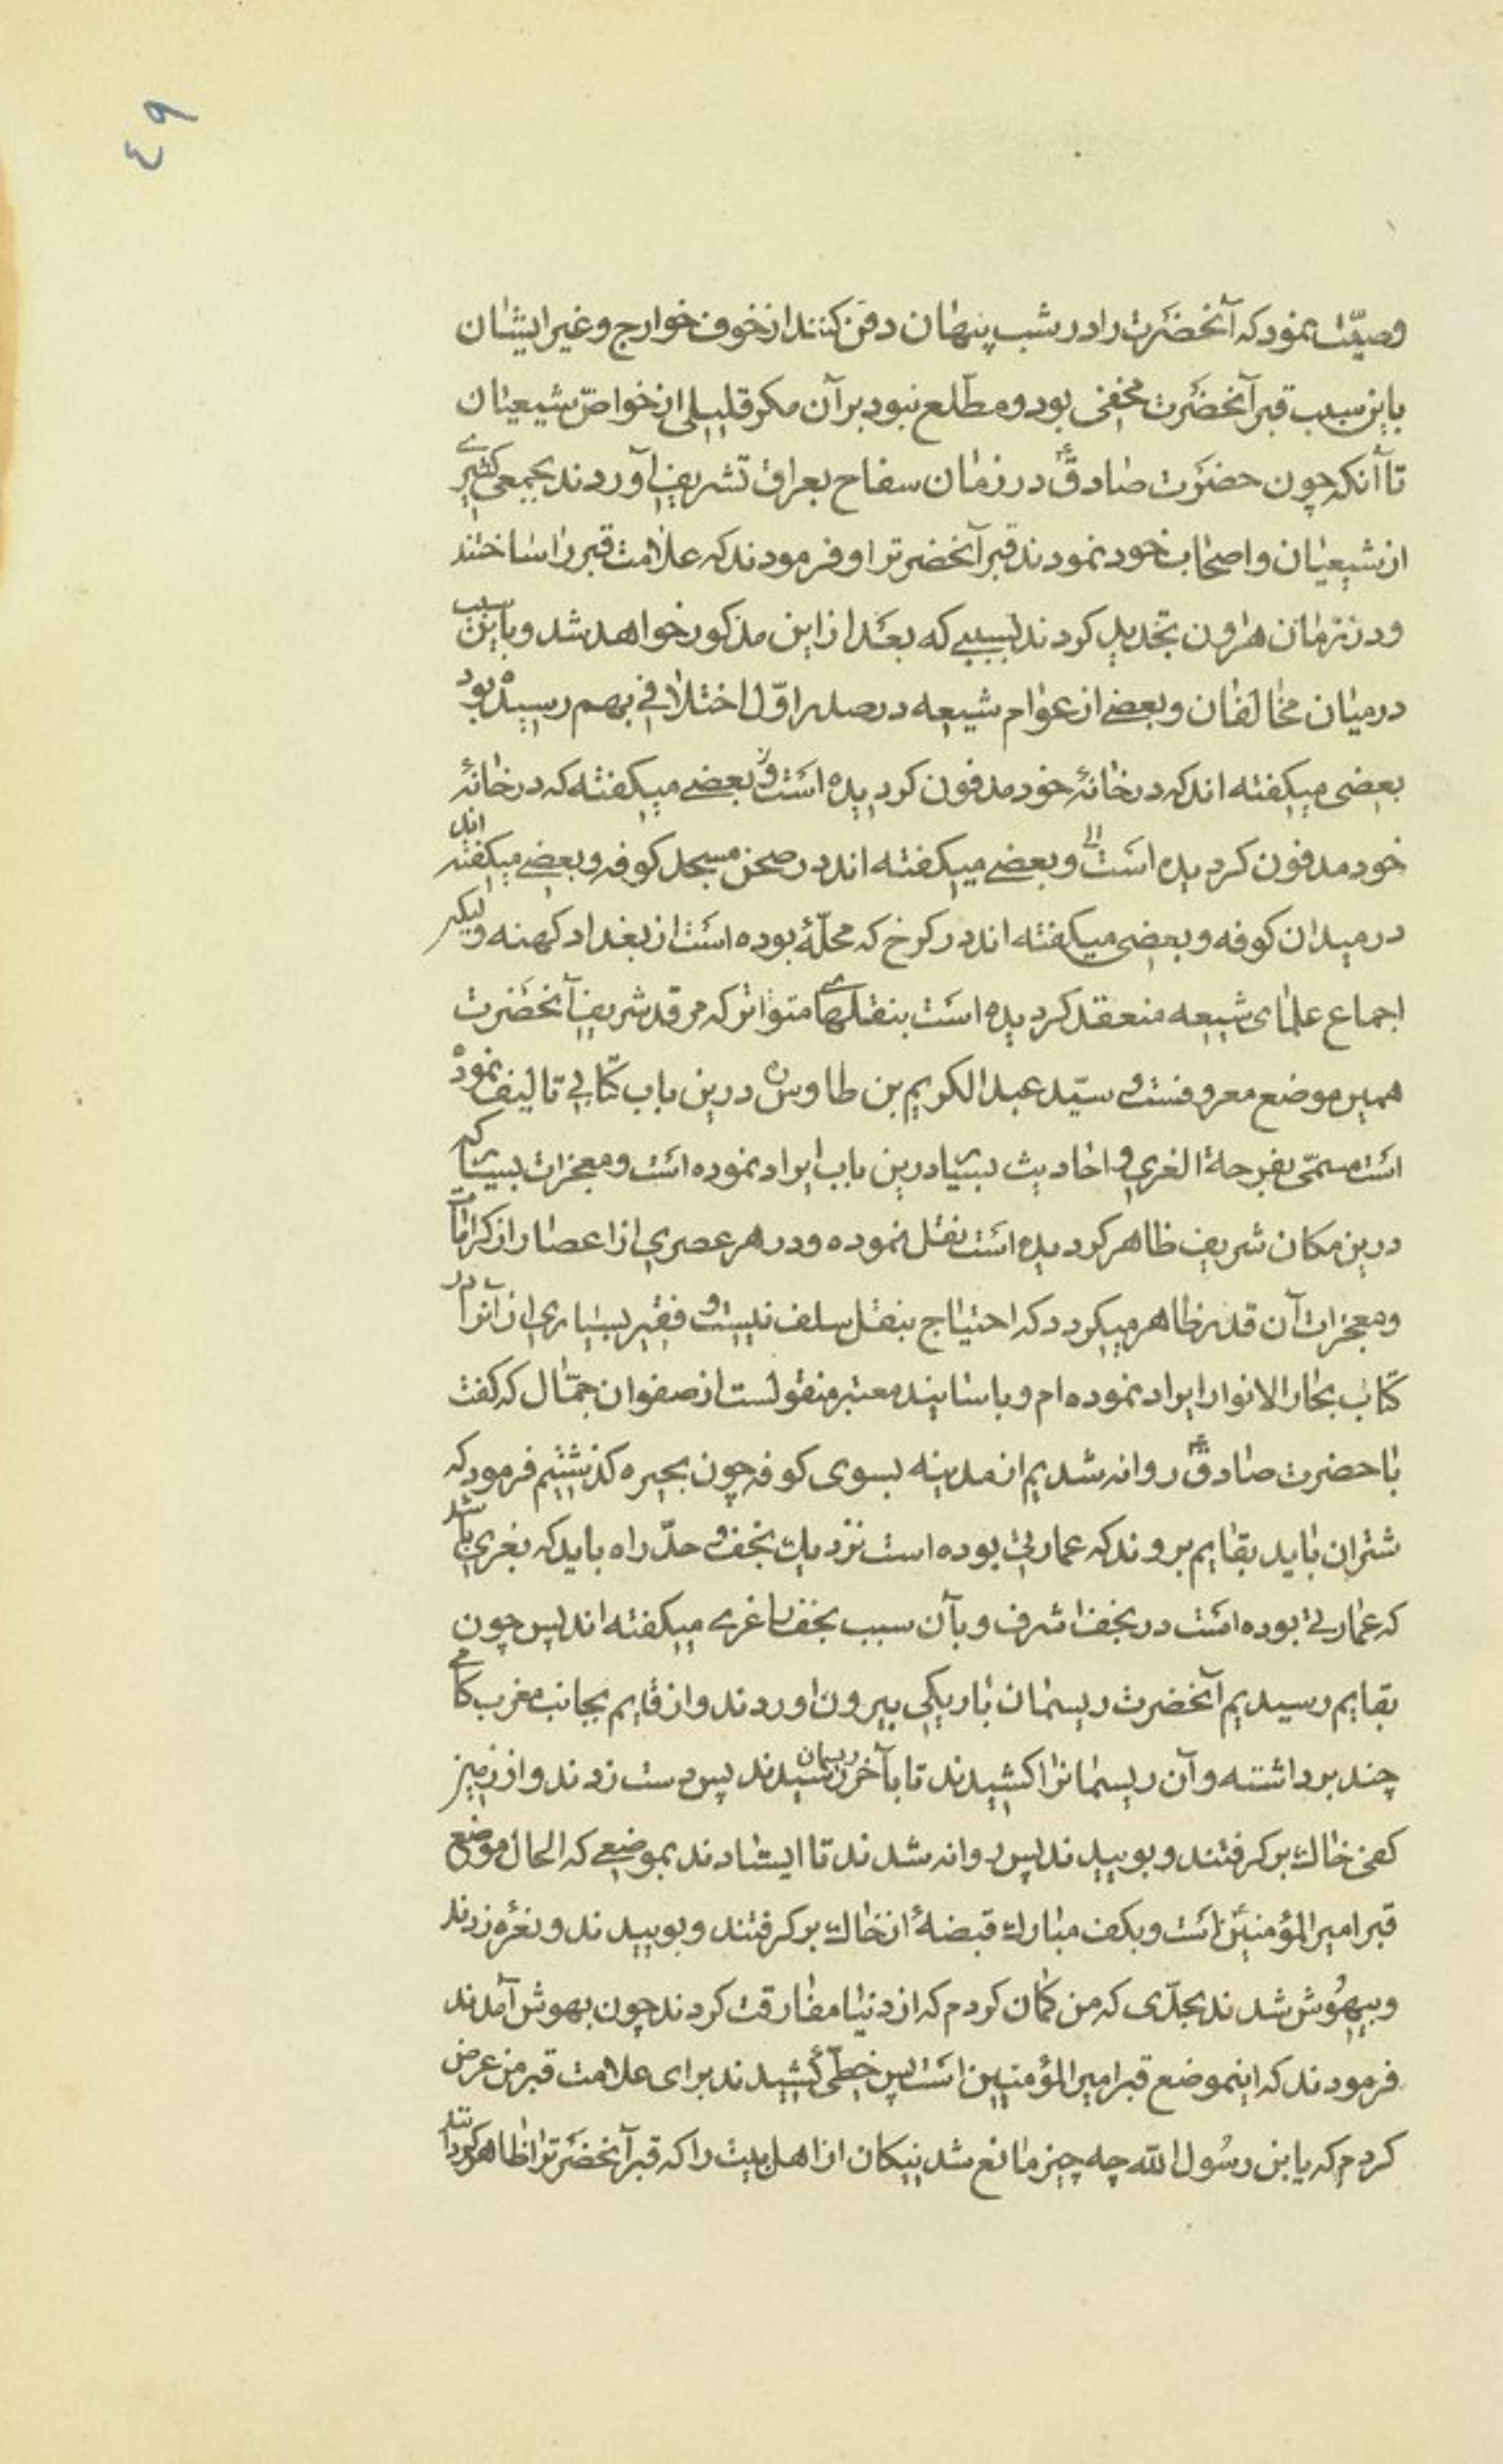 ٤٩
وصیّت نمود که آنحضرت را در شب پنهان دفن کنند از خوف خوارج و غیر ایشان
باین سبب قبر آنحضرت مخفی بود و مطّلع نبود بر آن مکر قلیلی از خواصّ شیعیان
تا آنکه چون حضرت صادقؑ در زمان سفاح بعراق تشریف آوردند بجمعی کثیرے
از شیعیان و اصحاب خود نمودند قبر آنحضرترا و فرمودند که علامت قبر را ساختند
و در زمان هارون تجدید کردند بسببی که بعد از این مذکور خواهد شد و باین سبب
در میان مخالفان و بعضے از عوام شیعه در صدر اوّل اختلافی بهم رسیده بود
بعضی میکفته اند که در خانهٔ خود مدفون کردیده است و بعضے میکفته که در خانهٔ
خود مدفون کردیده است و بعضے میکفته اند در صحن مسجد کوفه و بعضے میکفته اند
در میدان کوفه و بعضی میکفته اند در کرخ که محلّهٔ بوده است از بغداد کهنه ولیکن
اجماع علمای شیعه منعقد کردیده است بنقلهاے متواتر که مرقد شریف آنحضرت
همین موضع معروفست و سیّد عبد الکریم بن طاوس ره درین باب کتابی تالیف نموده
است مسمّی بفرحة الغری و احادیث بسیار درین باب ایراد نموده است و معجزات بسیار که
درین مکان شریف ظاهر کردیده است نقل نموده و در هر عصری از اعصار از کرامات
و معجزات آن قدر ظاهر میکردد که احتیاج بنقل سلف نیست و فقیر بسیاری از آنرا در
کتاب بحار الانوار ایراد نموده ام و باسانید معتبر منقولست از صفوان جمّال که کفت
با حضرت صادقؑ روانه شدیم از مدینه بسوی کوفه چون بحیره کذشتیم فرمود که
شتران باید بقایم بروند که عمارتی بوده است نزدیک نجف و حدّ راه باید که بغری باشد
که عمارتی بوده است در نجف اشرف و بآن سبب نجف را غرے میکفته اند پس چون
بقایم رسیدیم آنحضرت ریسمان باریکی بیرون اوردند و از قایم بجانب مغرب کامے
چند برداشته و آن ریسمانرا کشیدند تا بآخر ریسمان رسیدند پس دست زدند و از زمین
کفی خاک بر کرفتند و بوییدند پس روانه شدند تا ایستادند بموضعے که الحال موضع
قبر امیر المؤمنین است و بکف مبارک قبضهٔ از خاک بر کرفتند و بوییدند و نعره زدند
و بیهوش شدند بحدّی که من کمان کردم که از دنیا مفارقت کردند چون بهوش آمدند
فرمودند که اینموضع قبر امیر المؤمنین است پس خطّی کشیدند برای علامت قبر من عرض
کردم که یا بن رسُول الله چه چیز مانع شد نیکان از اهل بیت را که قبر آنحضرترا ظاهر کردانند